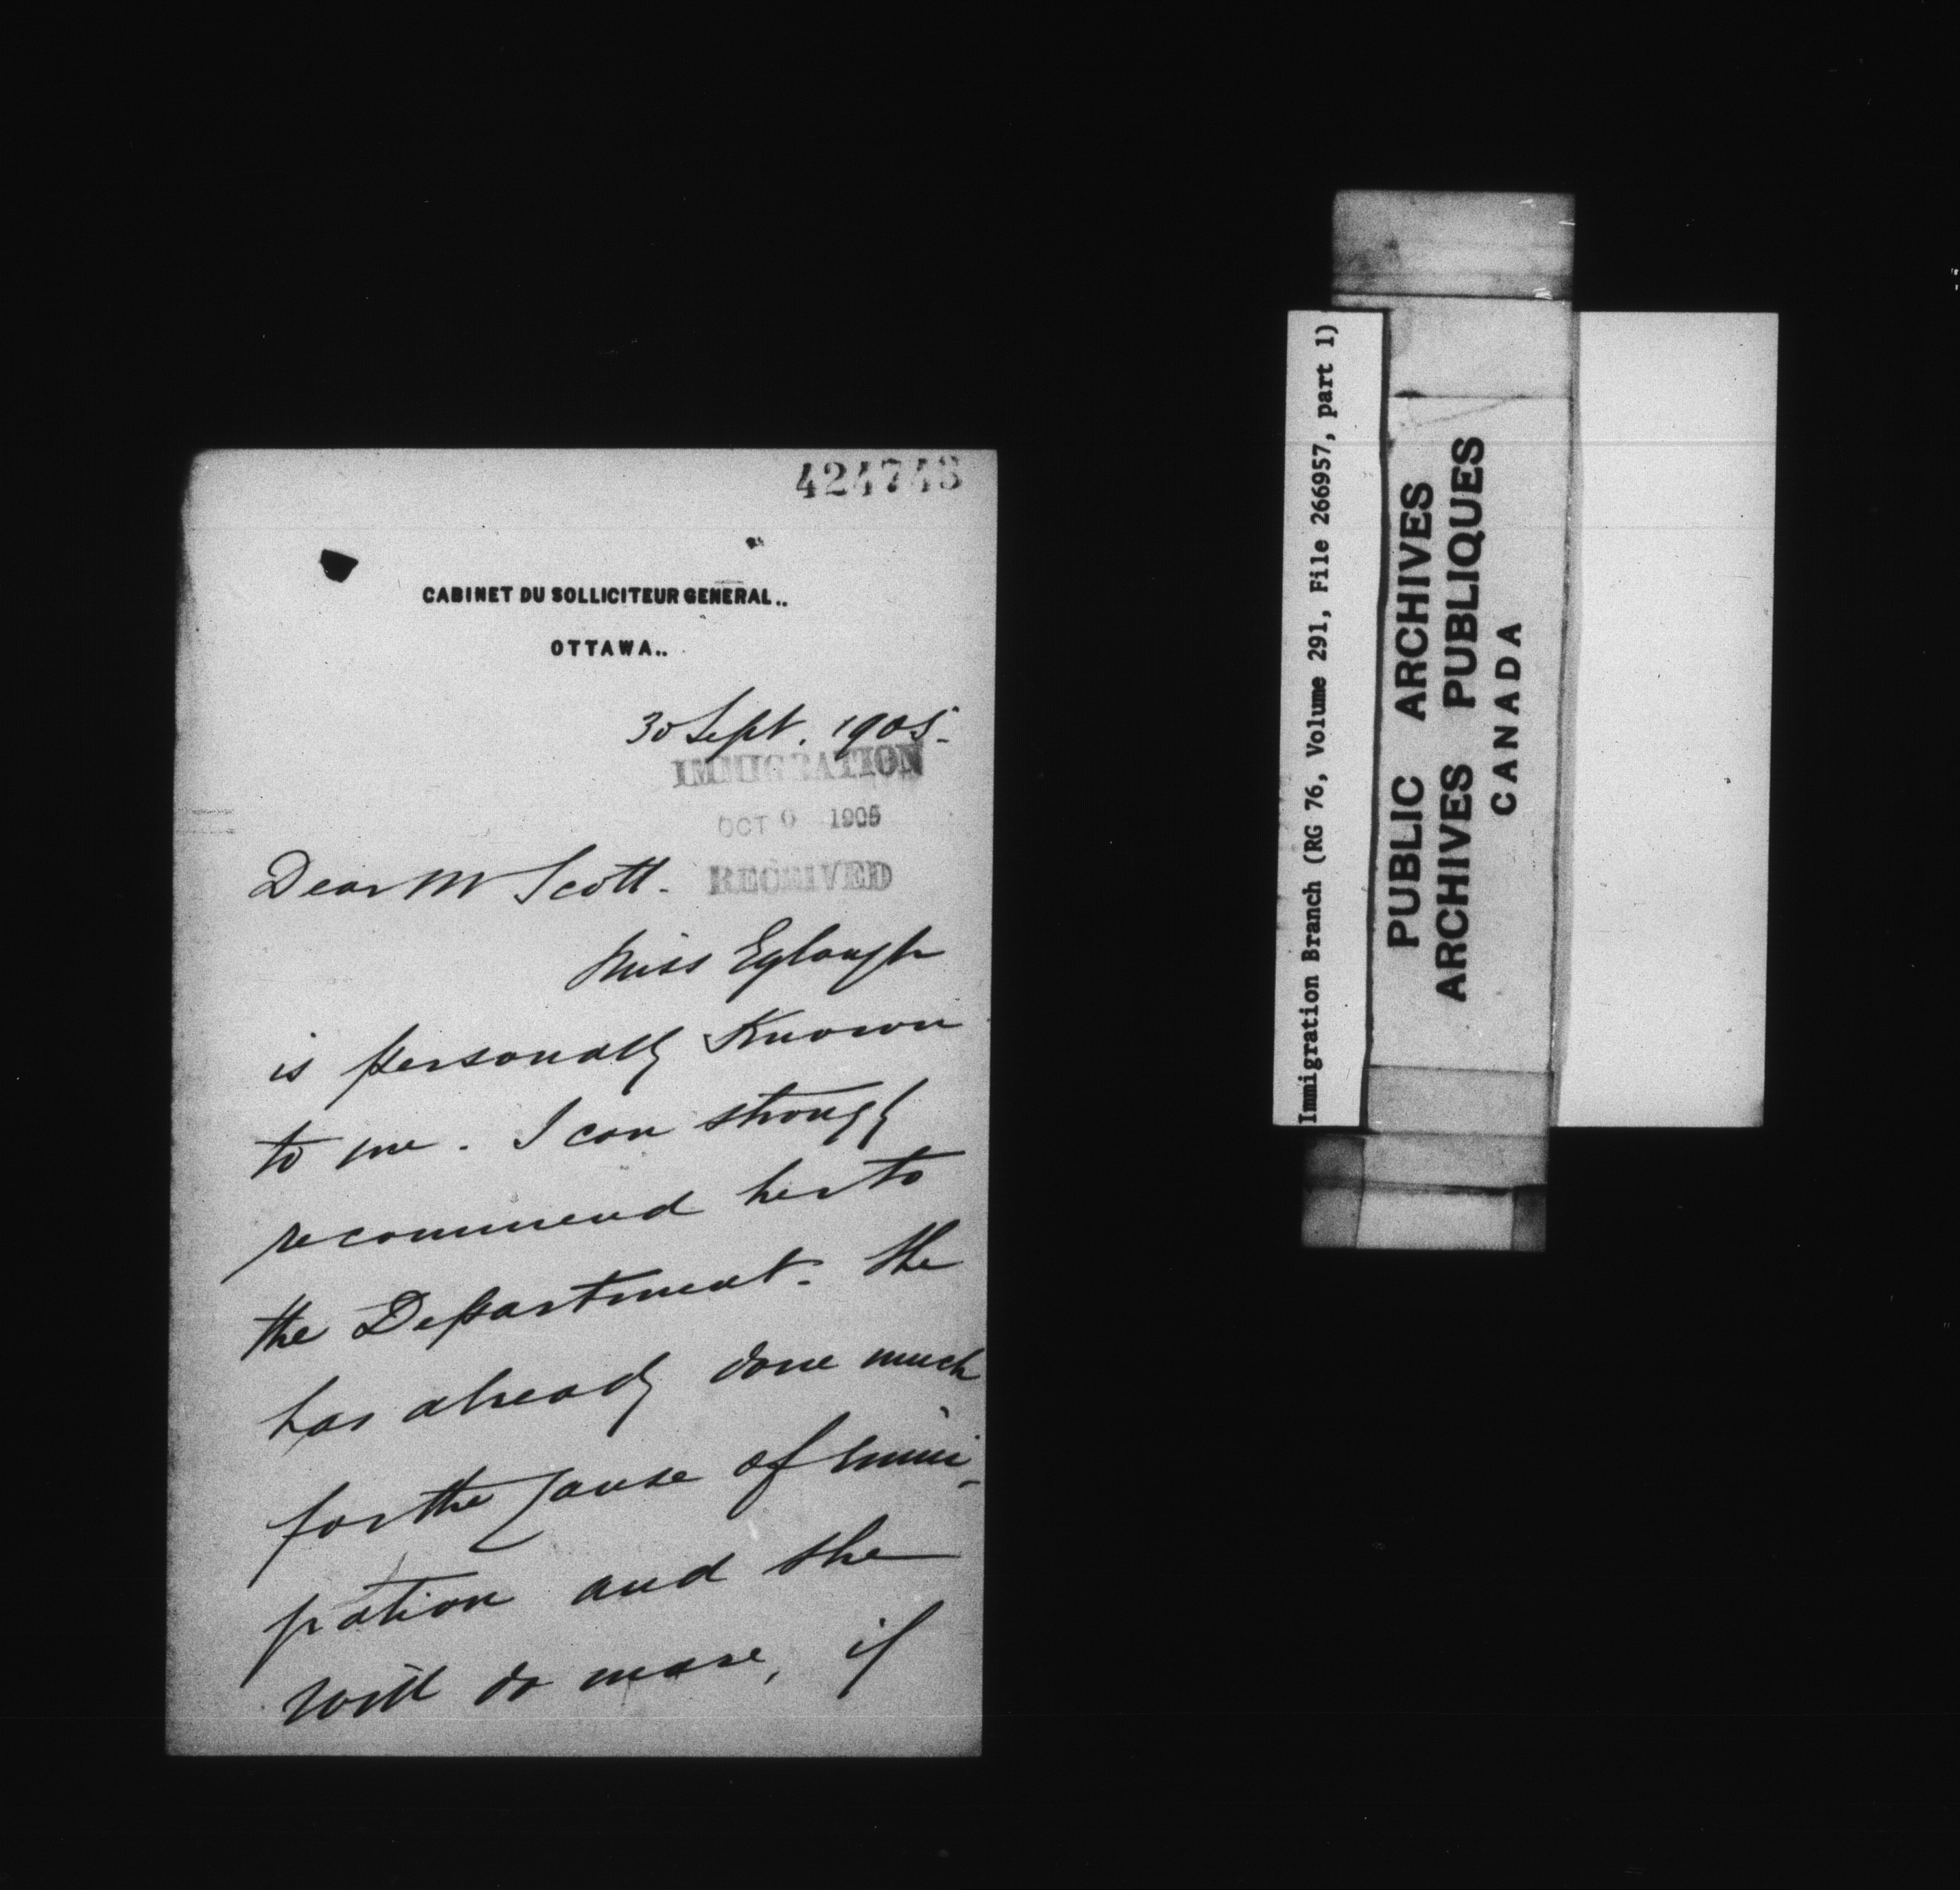 424743
CABINET DU SOLLICITEUR GENERAL..
OTTAWA..
30 Sept. 1905.
IMMIGRATION
OCT 6 1905
RECEIVED
Dear Mr Scott.
Miss Eglaugh
is personally Known
to me. I can strongly
recommend her to
the Department. She
has already done much
for the cause of immi-
gration and she
will do more, if
Immigration Branch (RG 76, Volume 291, File 266957, part 1)
PUBLIC ARCHIVES
ARCHIVES PUBLIQUES
CANADA